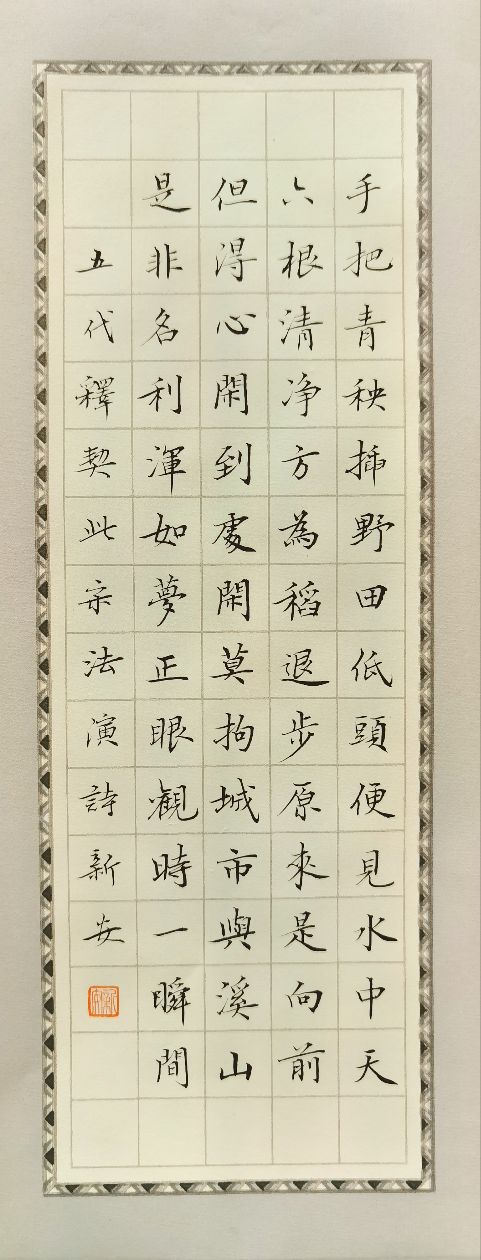 手把青秧插野田低頭便見水中天
六根清净方為稻退步原來是向前
但得心閑到處閑莫拘城市與溪山
是非名利渾如夢正眼觀時一瞬間
五代釋契此宗法演詩新安